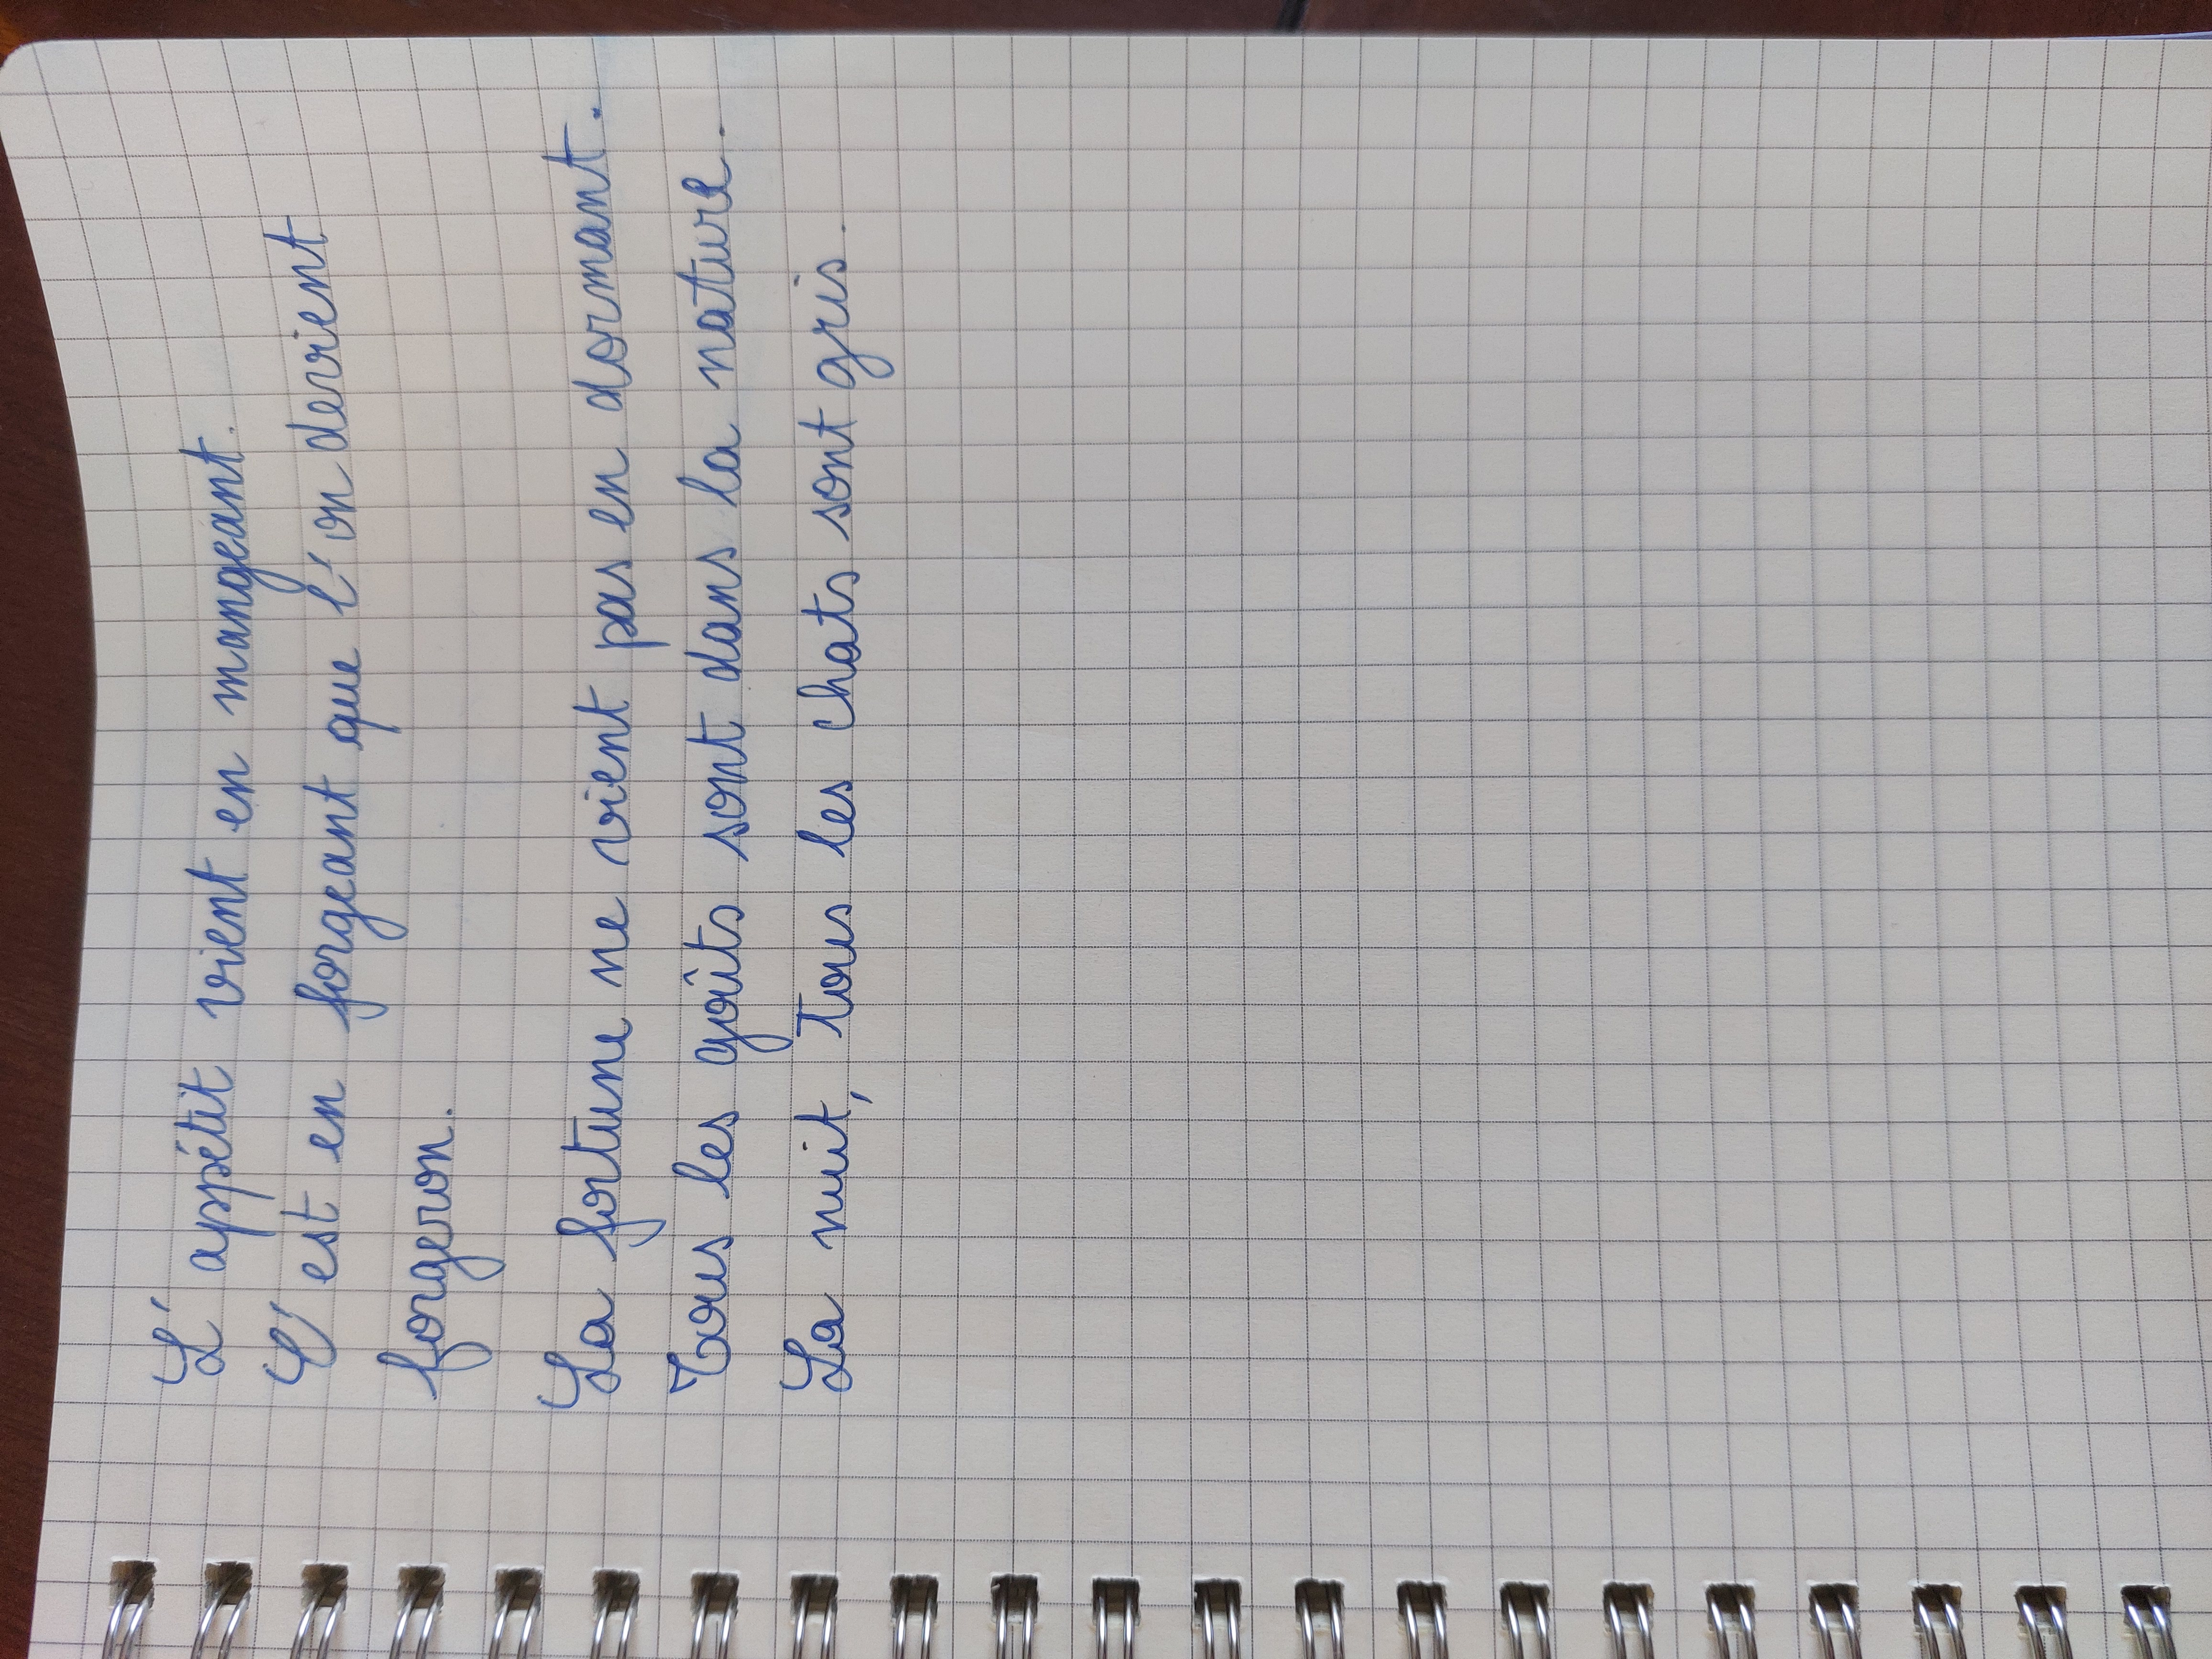 L'appétit vient en mangeant.
C'est en forgeant que l'on devient
forgeron.
La fortune ne vient pas en dormant.
Tous les goûts sont dans la nature.
La nuit, tous les chats sont gris.